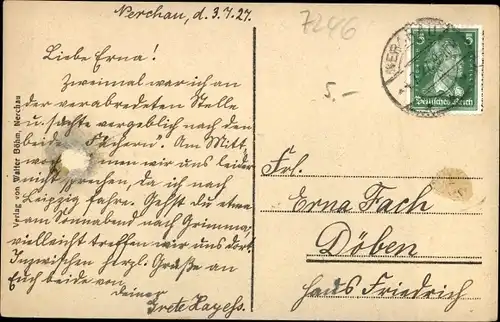 Nerchau, d. 3.7.27.
7246
5.-
Liebe Erna!
Zweimal war ich an
der verabredeten Stelle
u. suchte vergeblich nach den
beiden "Fächern". Am Mitt-
wo nnen wir uns leider
nicht sprechen, da ich nach
Leipzig fahre. Gehst du etwa
am Sonnabend nach Grimma,
vielleicht treffen wir uns dort.
Inzwischen herzl. Grüße an
Euch beide von
deiner
Grete
Verlag von Walter Böhm, Nerchau
5 5
Deutsches Reich
Frl.
Erna Fach
Döben
Haus Friedrich